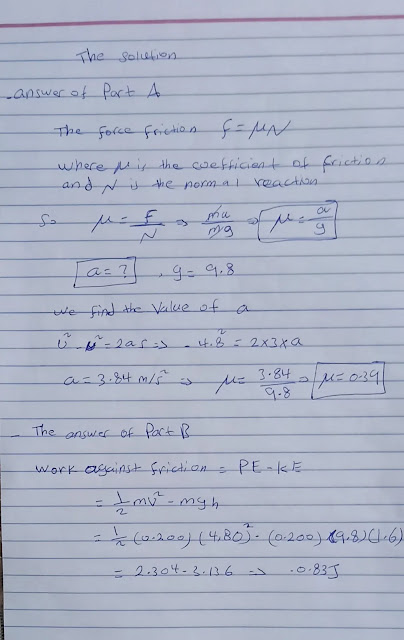 The solution
- answer of Part A
The force friction f = μN
where μ is the coefficient of friction
and N is the normal reaction
So μ = f/N ⇒ ma/mg ⇒ μ = a/g
a = ? , g = 9.8
we find the value of a
v² - u² = 2as ⇒ - 4.8² = 2x3xa
a = 3.84 m/s² ⇒ μ = 3.84/9.8 ⇒ μ = 0.39
- The answer of Part B
work against friction = PE - KE
= 1/2 mv² - mgh
= 1/2 (0.200) (4.80)² - (0.200) (9.8) (1.6)
= 2.304 - 3.136 ⇒ -0.83J